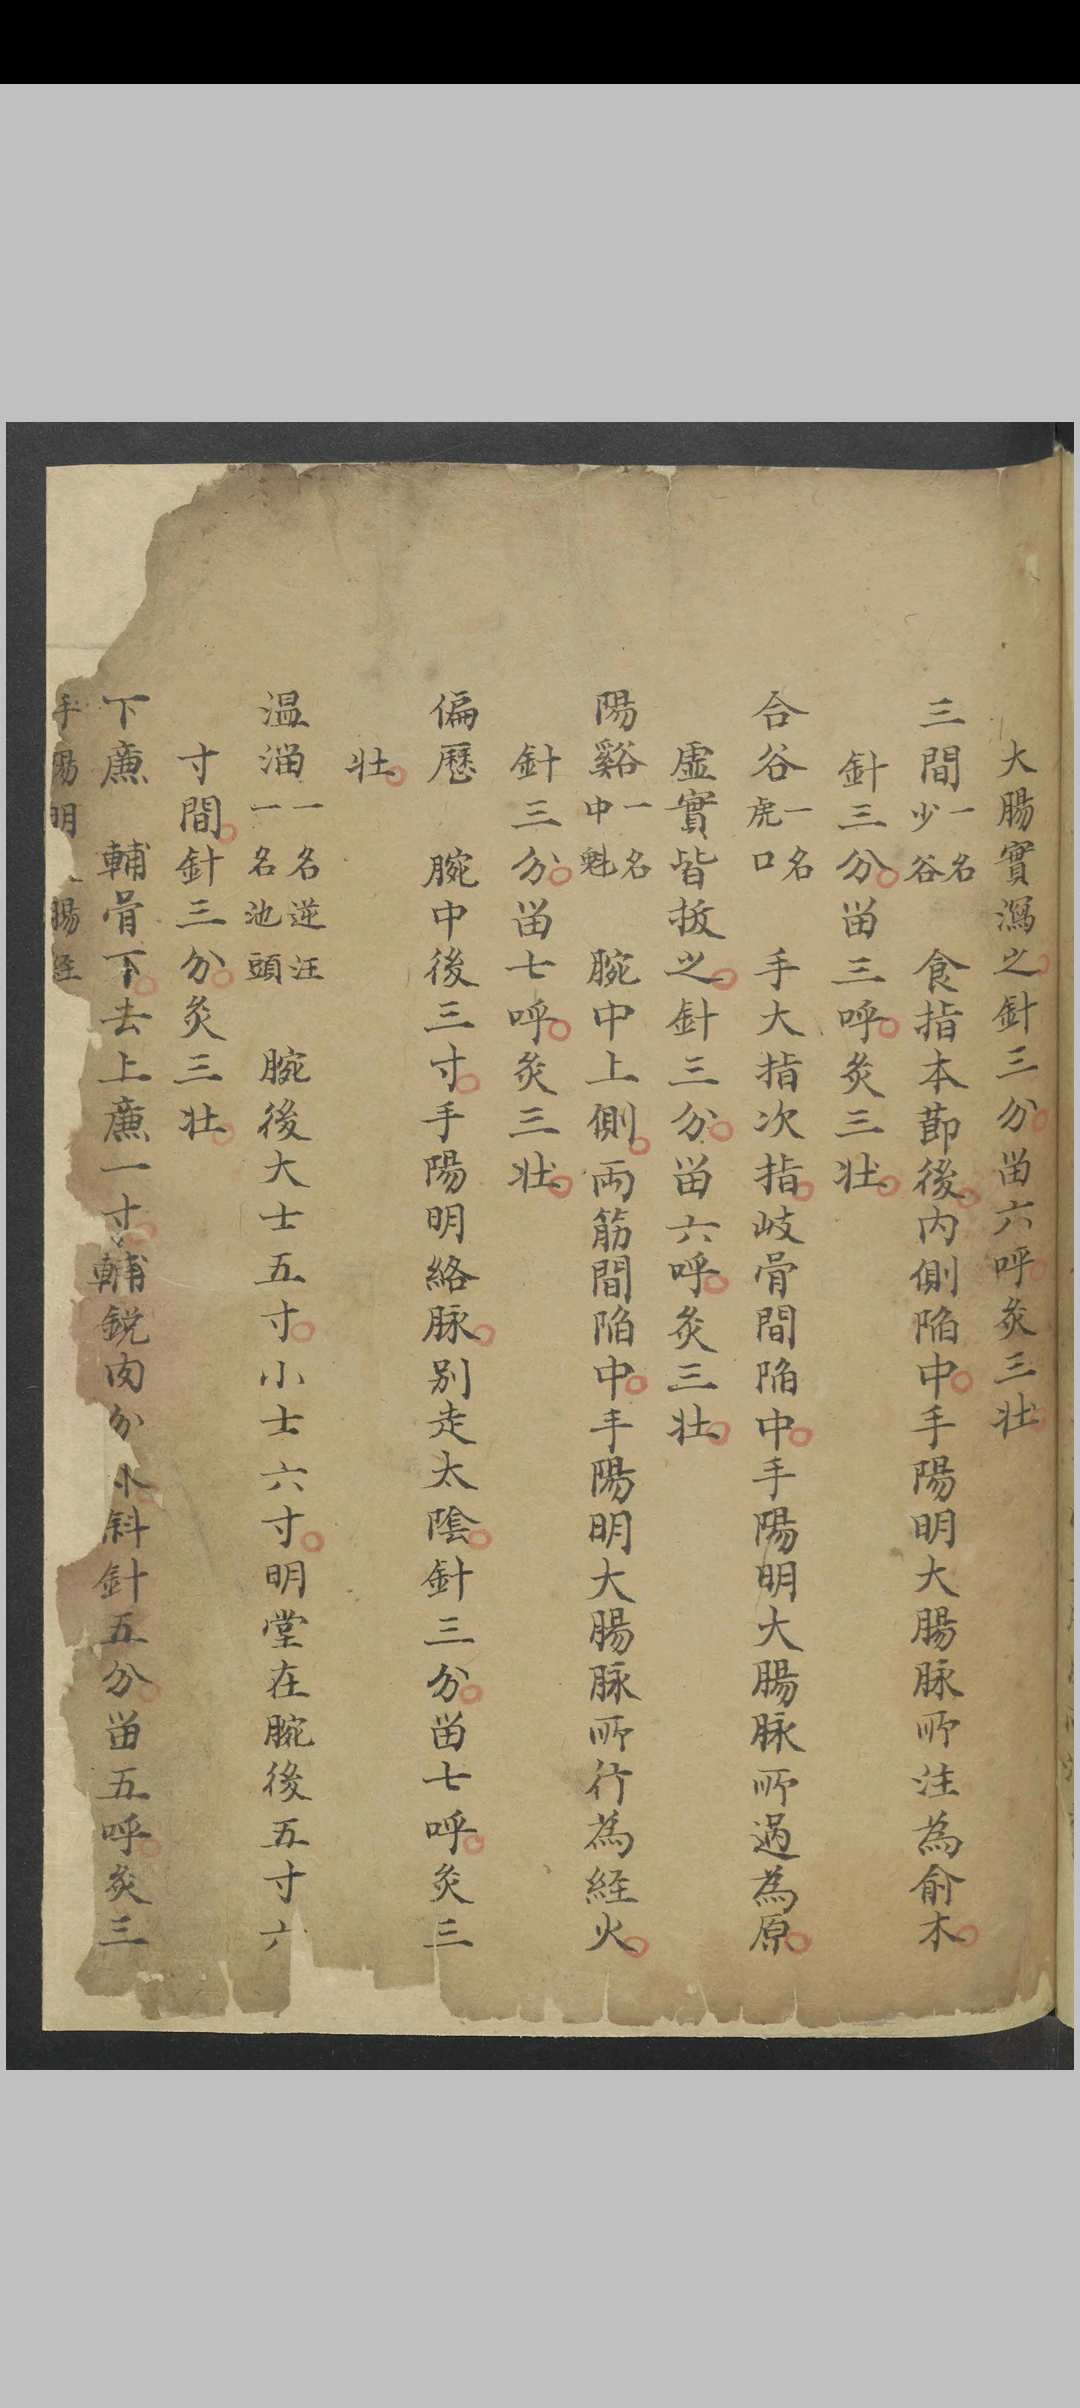 大腸實瀉之針三分畄六呼灸三壮
三間一名少谷 食指本莭後内側陷中手陽明大腸脉所注為俞木
針三分畄三呼灸三壮
合谷一名虎口 手大指次指岐骨間陷中手陽明大腸脉所過為原
虚實皆拔之針三分畄六呼灸三壮
陽谿一名中魁 腕中上側両筋間陷中手陽明大腸脉所行為経火
針三分畄七呼灸三壮
偏歷 腕中後三寸手陽明絡脉別走太陰針三分畄七呼灸三
壮
温溜一名逆汪一名池頭 腕後大士五寸小士六寸明堂在腕後五寸六
寸間針三分灸三壮
下廉 輔骨下去上廉一寸輔鋭肉分 斜針五分畄五呼灸三
手陽明 腸経